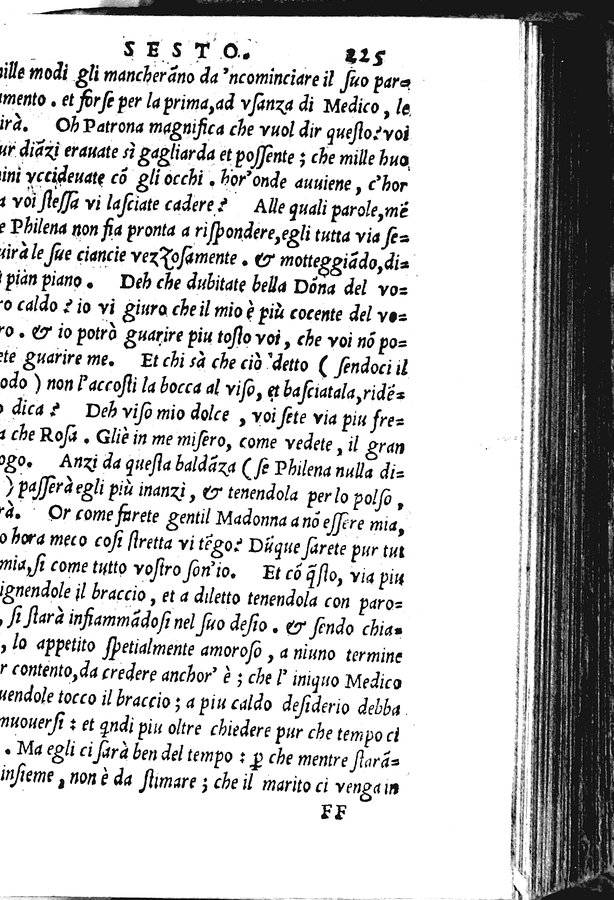 SESTO. 225
mille modi gli mancherāno da 'ncominciare il ſuo par=
amento. et forſe per la prima, ad vſanza di Medico, le
irà. Oh Patrona magnifica che vuol dir queſto? voi
ur diāzi erauate sì gagliarda et poſſente; che mille huo
ini vccideuate cō gli occhi. hor'onde auuiene, c'hor
a voi ſteſſa vi laſciate cadere? Alle quali parole, mē
e Philena non ſia pronta a riſpondere, egli tutta via ſe=
uirà le ſue ciancie vezzoſamente. & motteggiādo, di=
pian piano. Deh che dubitate bella Dōna del vo=
ro caldo? io vi giuro che il mio è più cocente del vo=
ro. & io potrò guarire piu toſto voi, che voi nō po=
ete guarire me. Et chi sà che ciò detto (ſendoci il
odo) non l'accoſti la bocca al viſo, et baſciatala, ridē=
o dica? Deh viſo mio dolce, voi ſete via piu fre=
a che Roſa. Gliè in me miſero, come vedete, il gran
ogo. Anzi da queſta baldāza (ſe Philena nulla di=
) paſſerà egli più inanzi, & tenendola per lo polſo,
rà. Or come farete gentil Madonna a nō eſſere mia,
o hora meco coſi ſtretta vi tēgo? Dūque ſarete pur tut
mia, ſi come tutto voſtro ſon'io. Et cō q̄ſto, via piu
ignendole il braccio, et a diletto tenendola con paro=
, ſi ſtarà infiammādoſi nel ſuo deſio. & ſendo chia=
, lo appetito ſpetialmente amoroſo, a niuno termine
r contento, da credere anchor' è; che l' iniquo Medico
uendole tocco il braccio; a piu caldo deſiderio debba
muouerſi: et qndi piu oltre chiedere pur che tempo ci
. Ma egli ci ſarà ben del tempo: ꝑ che mentre ſtarā=
inſieme, non è da ſtimare; che il marito ci venga in
FF